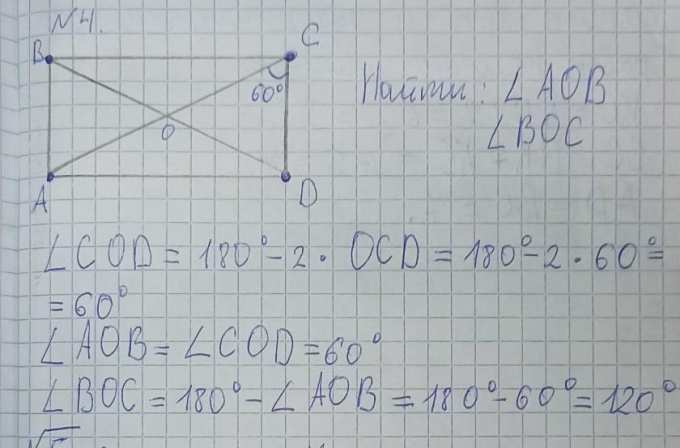 №4.
B
C
60°
O
A
D
Найти: ∠AOB
∠BOC
∠COD = 180° - 2 · OCD = 180° - 2 · 60° =
= 60°
∠AOB = ∠COD = 60°
∠BOC = 180° - ∠AOB = 180° - 60° = 120°